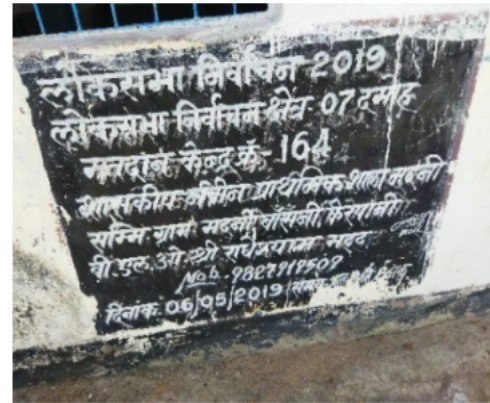 लोकसभा निर्वाचन 2019
लोकसभा निर्वाचन क्षेत्र 07 दमोह
मतदान केन्द्र क्रं- 164
शासकीय नवीन प्राथमिक शाला मदनी
सम्मि. ग्राम मदनी
बी.एल.ओ. श्री राधेश्याम
Mob. 9827919509
दिनांक 06/05/2019 समय